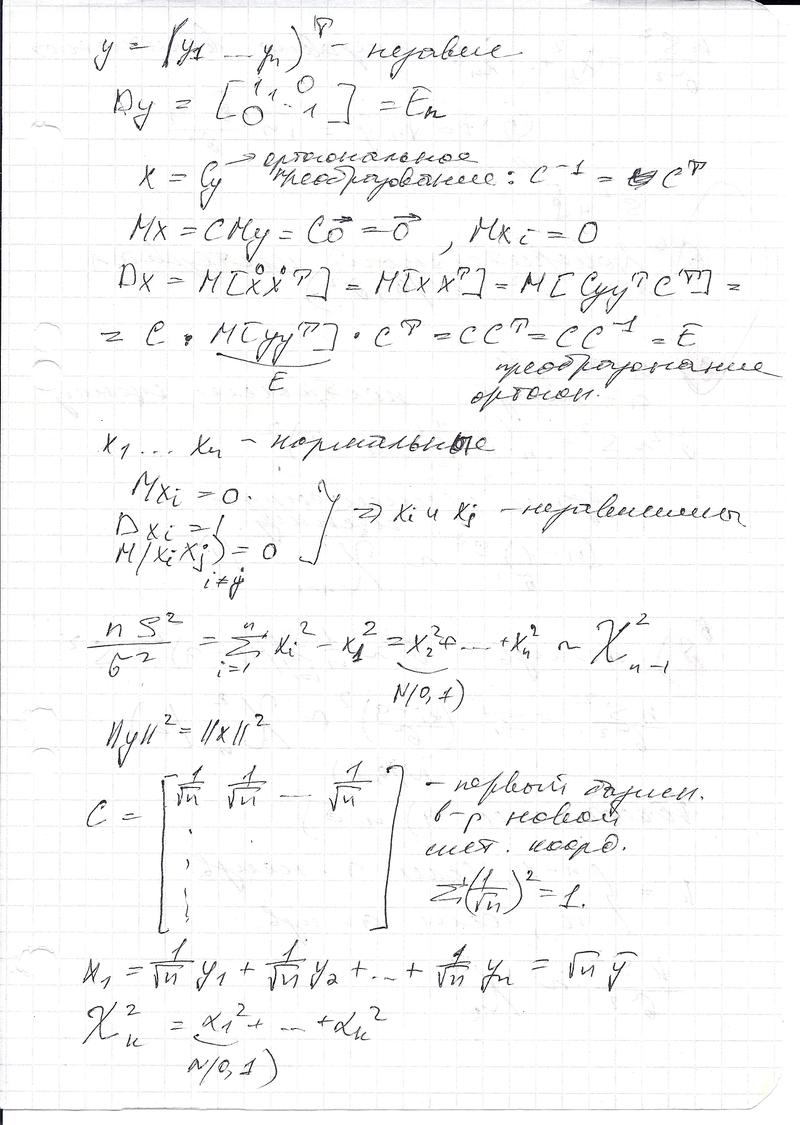 y = (y₁ ... yₙ)ᵀ - независ
Dy = [1 1 0 0 ... 1] = Eₙ
x = Cy → ортогональное
преобразование: C⁻¹ = Cᵀ
Mx = CMy = C0⃗ = 0⃗, Mxᵢ = 0
Dx = M[x̊x̊ᵀ] = M[xxᵀ] = M[CyyᵀCᵀ] =
= C · M[yyᵀ] · Cᵀ = CCᵀ = CC⁻¹ = E
E
преобразование
ортогон.
x₁ ... xₙ - нормальные
Mxᵢ = 0.
Dxᵢ = 1
⇒ xᵢ и xⱼ - независимы
M(xᵢxⱼ) = 0
i≠j
nS²/σ² = Σᵢ₌₁ⁿ xᵢ² - x₁² = x₂² + ... + xₙ² ~ χ²ₙ₋₁
N(0,1)
||y||² = ||x||²
C = [1/√n 1/√n ... 1/√n] - первый базисн.
в-р новой
сист. коорд.
Σ(1/√n)² = 1.
x₁ = 1/√n y₁ + 1/√n y₂ + ... + 1/√n yₙ = √n ȳ
χ²ₖ = α₁² + ... + αₖ²
N(0,1)